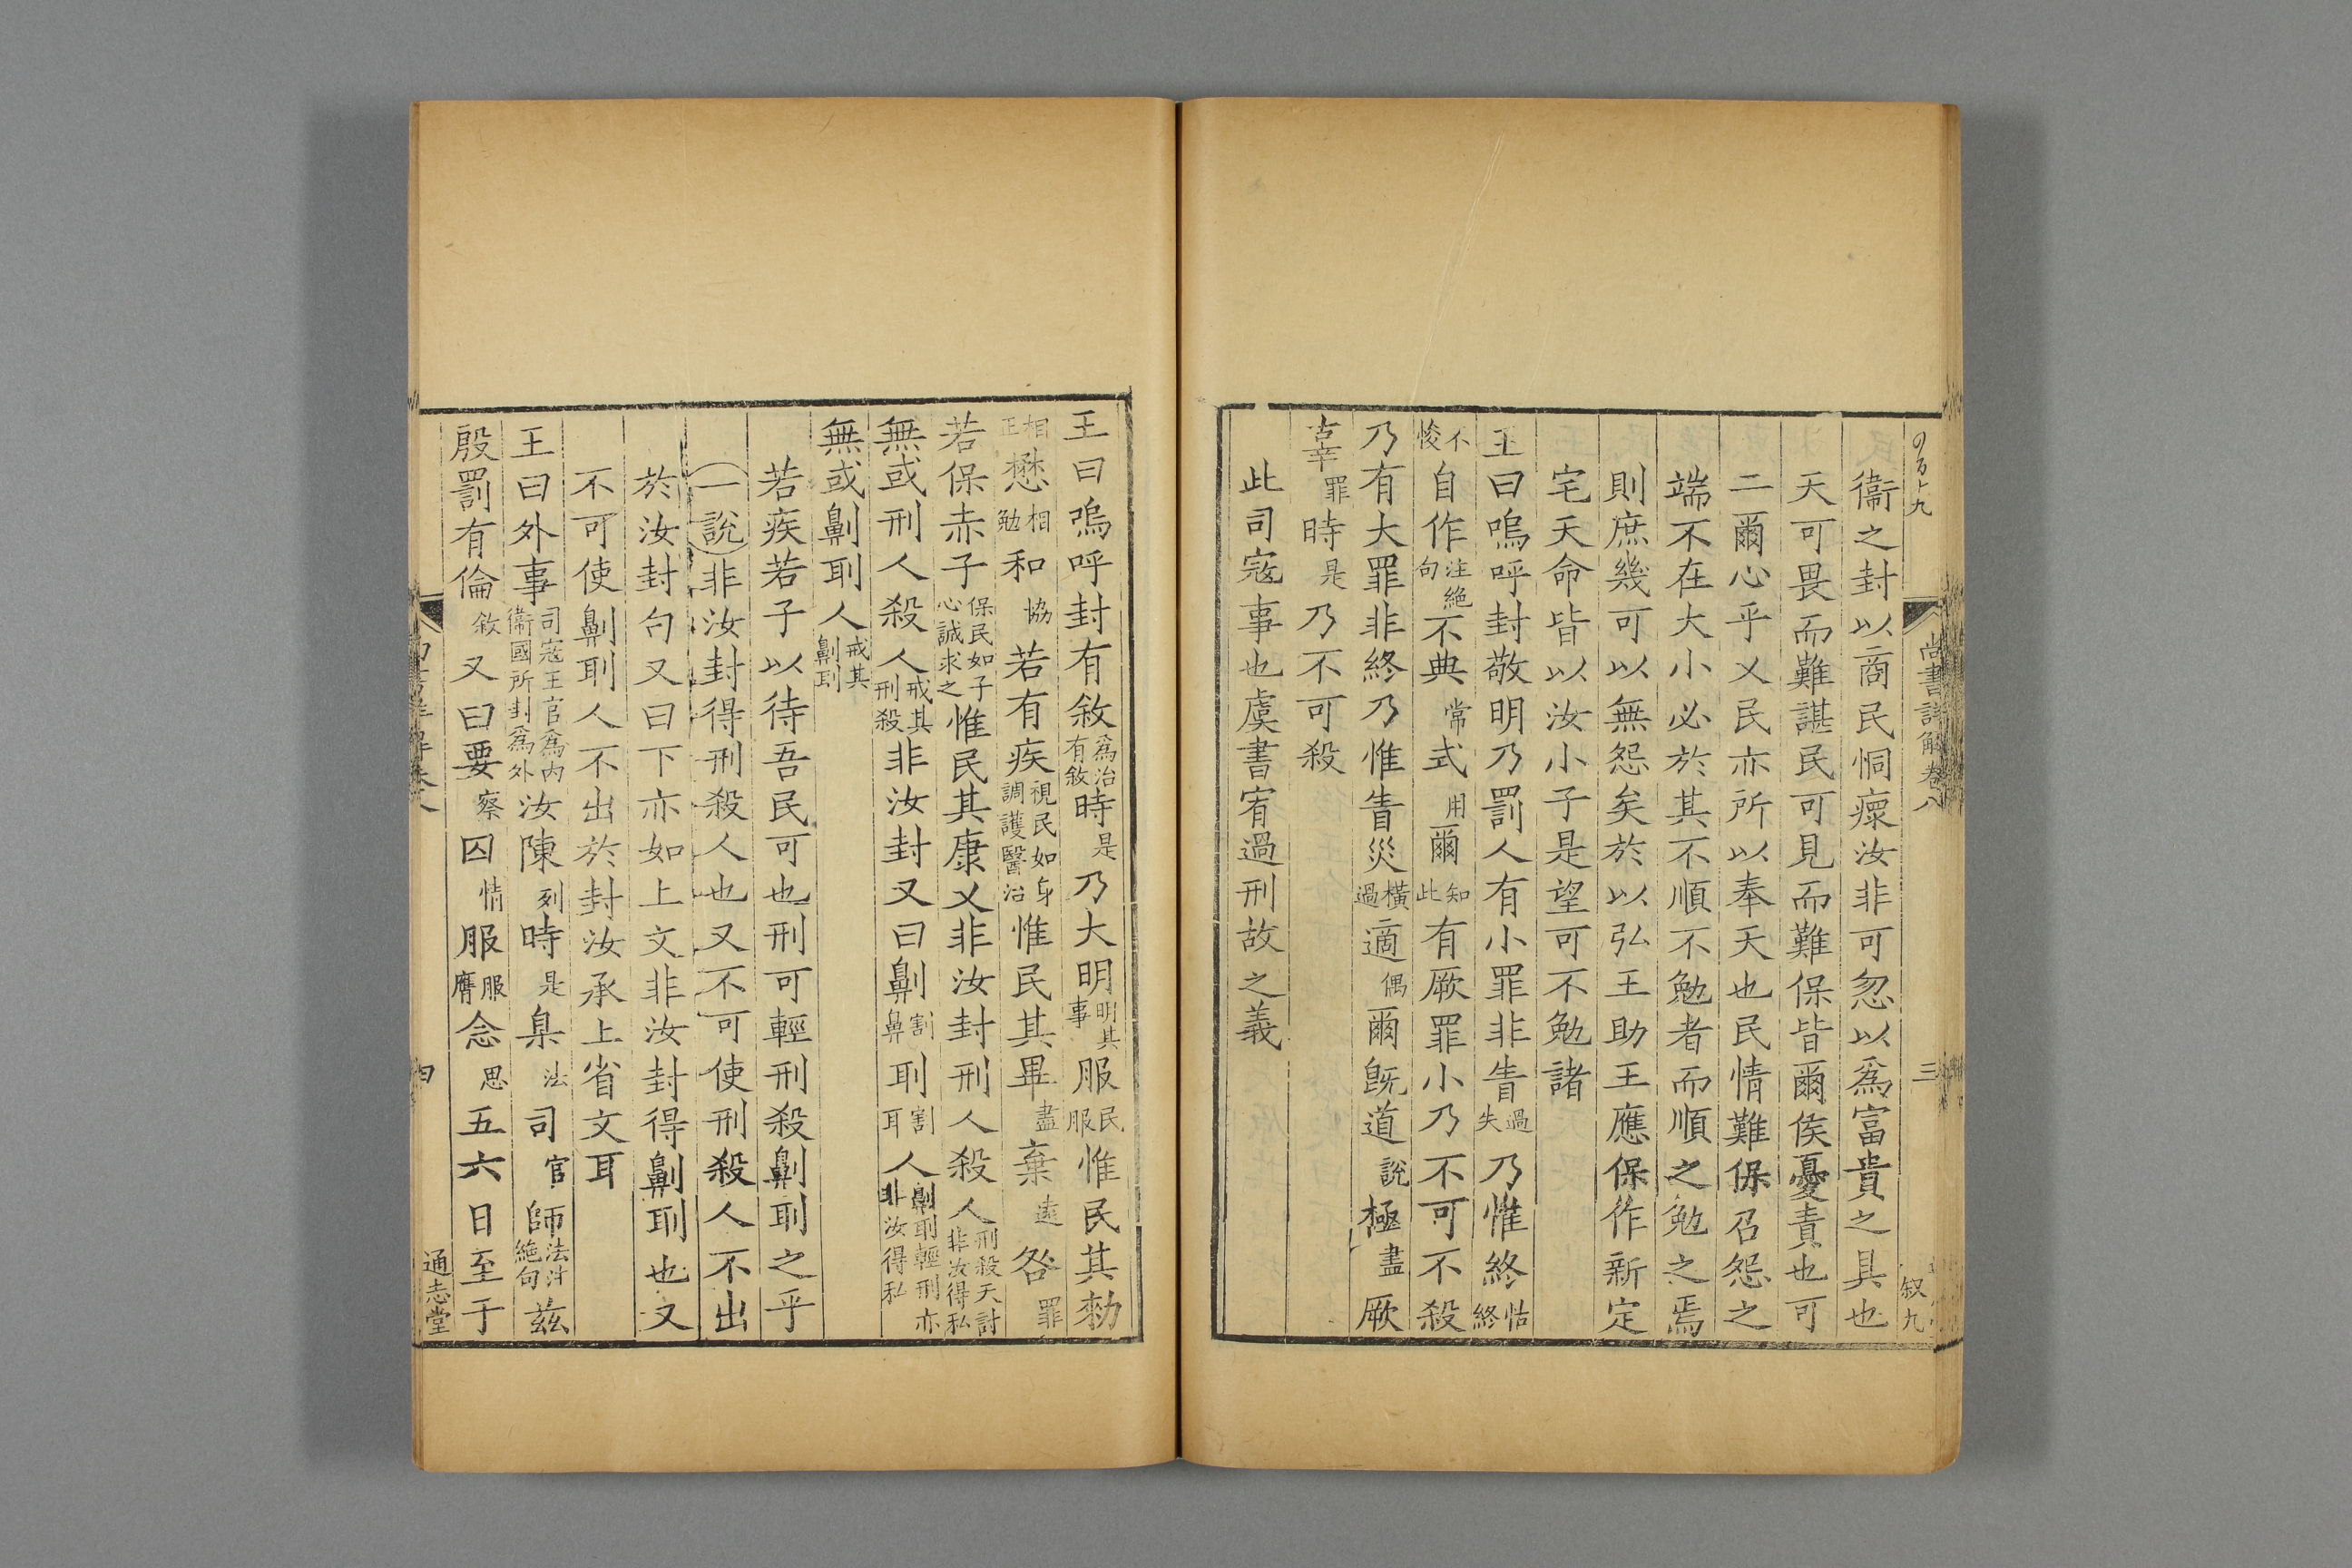 尚書詳解卷八 三
衞之封以商民恫瘝汝非可忽以爲富貴之具也
天可畏而難諶民可見而難保皆爾侯憂責也可
二爾心乎乂民亦所以奉天也民情難保召怨之
端不在大小必於其不順不勉者而順之勉之焉
則庶幾可以無怨矣於以弘王助王應保作新定
宅天命皆以汝小子是望可不勉諸
王曰嗚呼封敬明乃罰人有小罪非眚過失乃惟終怙終
不悛自作注絶句不典常式用爾知此有厥罪小乃不可不殺
乃有大罪非終乃惟眚災橫過適偶爾旣道說極盡厥
辜罪時是乃不可殺
此司寇事也虞書宥過刑故之義
王曰嗚呼封有敘爲治有敘時是乃大明明其事服民服惟民其勑
相正懋相勉和協若有疾視民如身調護醫治惟民其畢盡棄遠咎罪
若保赤子保民如子心誠求之惟民其康乂非汝封刑人殺人刑殺天討非汝得私
無或刑人殺人戒其刑殺非汝封又曰劓割鼻刵割耳人劓刵輕刑亦非汝得私
無或劓刵人戒其劓刵
若疾若子以待吾民可也刑可輕刑殺劓刵之乎
一說非汝封得刑殺人也又不可使刑殺人不出
於汝封句又曰下亦如上文非汝封得劓刵也又
不可使劓刵人不出於封汝承上省文耳
王曰外事司寇王官爲內衞國所封爲外汝陳列時是臬法司官師法注絶句茲
殷罰有倫敘又曰要察囚情服服膺念思五六日至于
四
通志堂